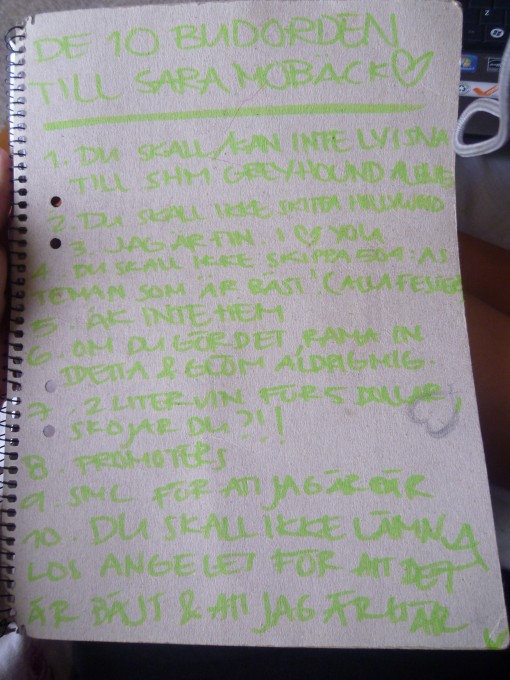 DE 10 BUDORDEN
TILL SARA MOBACK♡
1. DU SKALL/KAN INTE LYSSNA
TILL SHM GREYHOUND
2. DU SKALL IKKE SKIPPA HOLLYWOOD
3. JAG ÄR FIN. I ♡ YOU
4. DU SKALL IKKE SKIPPA 509:AS
TEMAN SOM ÄR BÄST
5. ÅK INTE HEM
6. OM DU GÖR DET, RAMA IN
DETTA & GLÖM ALDRIG MIG.
7. 2 LITER VIN FÖR 5 DOLLAR,
SKOJAR DU?!!
8. PROMOTERS
9. SMC FÖR ATT JAG ÄR DÄR
10. DU SKALL IKKE LÄMNA
LOS ANGELES FÖR ATT DET
ÄR BÄST & ATT JAG ÄR HÄR